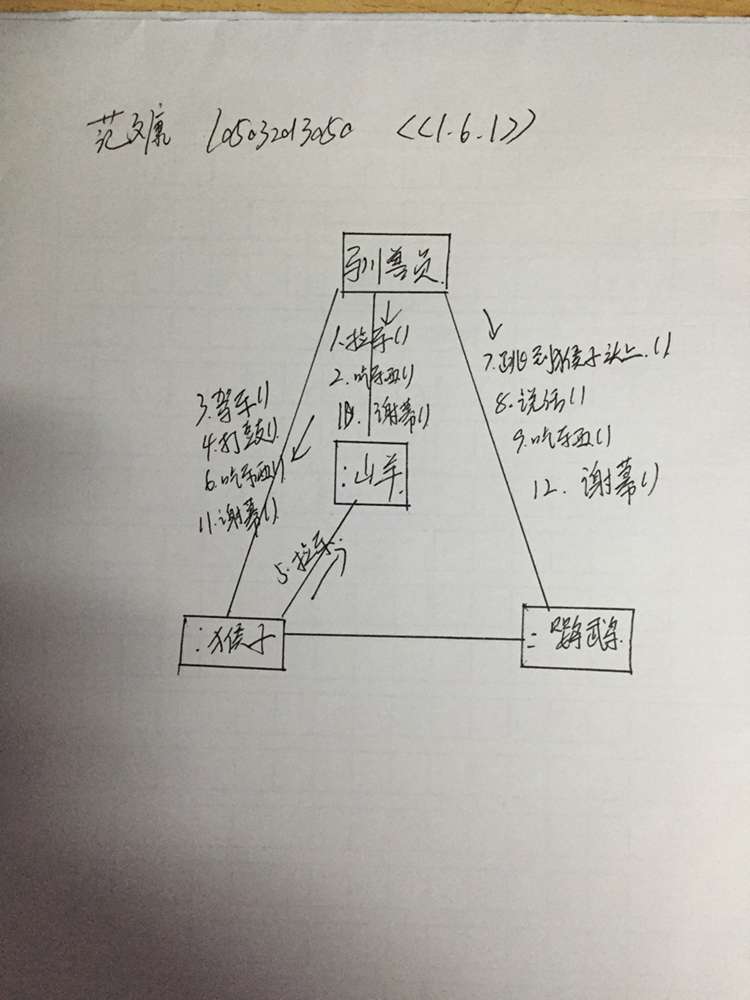 范文康 105032013050 <<1.6.1>>
驯兽员
1.拉车()
2.吃东西()
10.谢幕()
3.驾车()
4.打鼓()
6.吃东西()
11.谢幕()
7.跳到猴子头上.()
8.说话()
9.吃东西()
12.谢幕()
:山羊
5.拉车.
:猴子
:鹦鹉